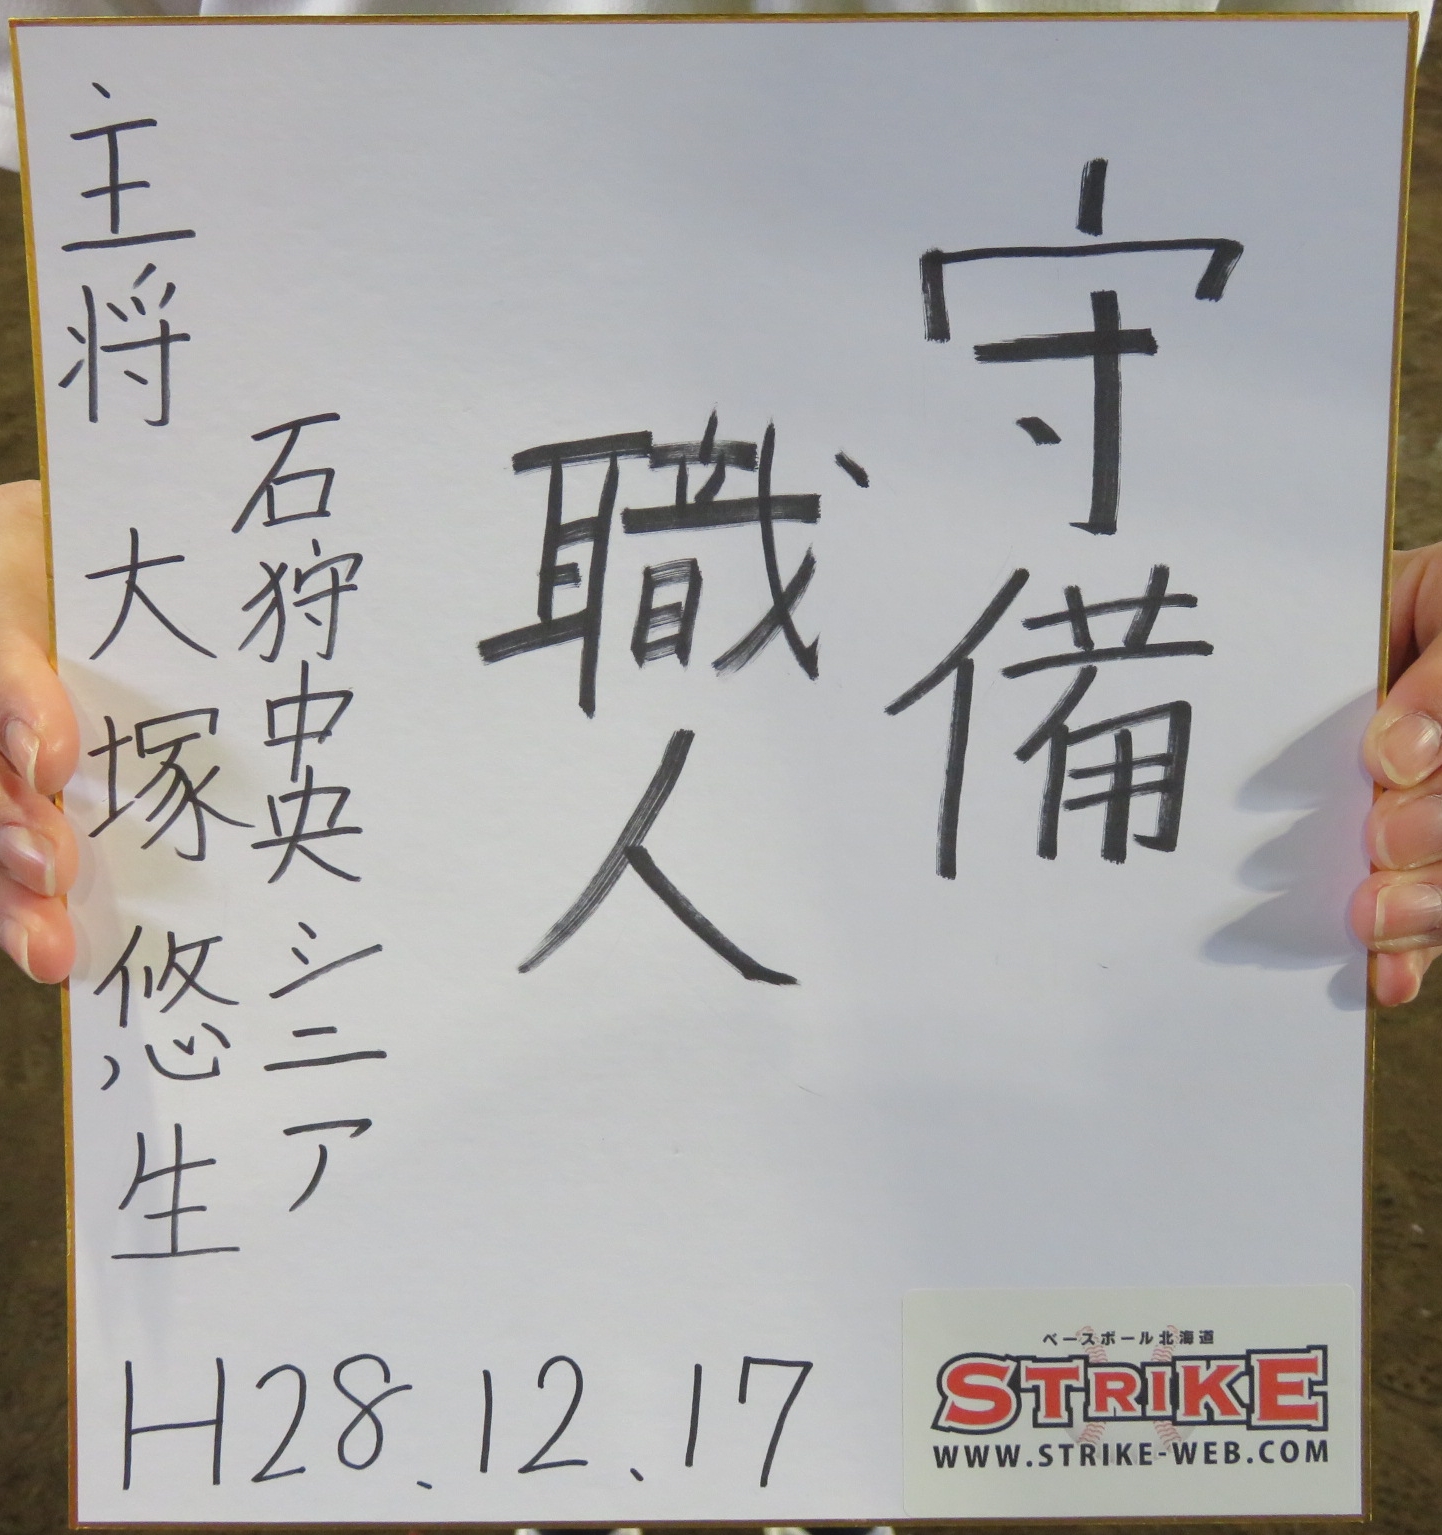 守備
職人
石狩中央シニア
主将 大塚 悠生
H28.12.17
ベースボール北海道
STRIKE
WWW.STRIKE-WEB.COM